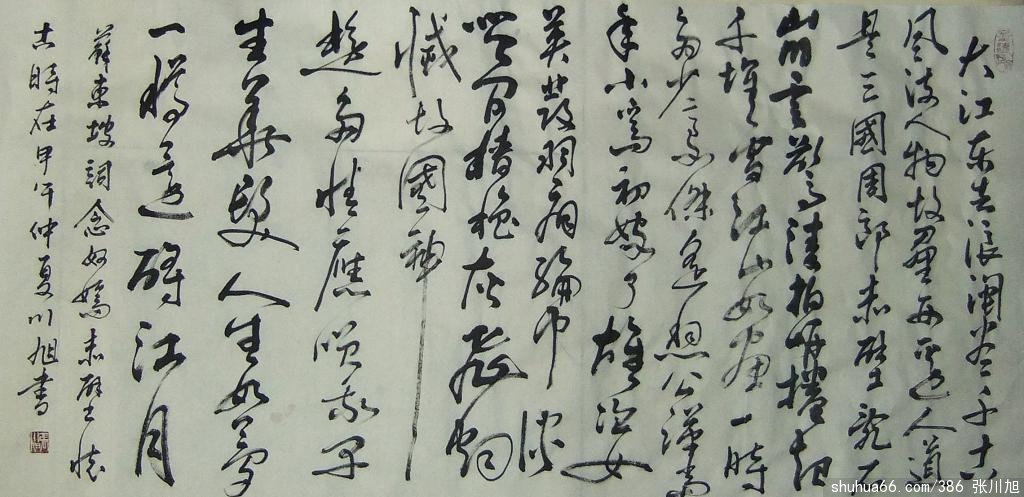 大江东去浪淘尽千古
风流人物故垒西边人道
是三國周郎赤壁乱石
崩云惊涛拍岸捲起
千堆雪江山如画一時
多少豪傑遥想公瑾當
年小喬初嫁了雄姿
英發羽扇綸巾谈
笑間檣櫓灰飛烟
滅故國神
遊多情應笑我早
生華髮人生如夢
一樽還酹江月
蘇東坡詞念奴嬌赤壁懷
古時在甲午仲夏川旭書
shuhua66.com/386 张川旭